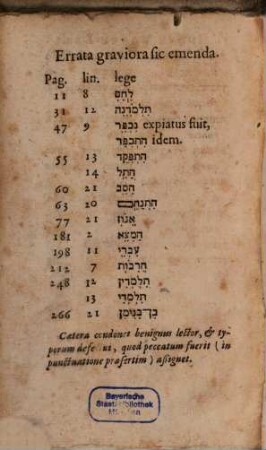 Errata graviora sic emenda.
Pag. lin. lege
11 8 לֶחֶם
31 12 תִלְמֹדְנָה
47 9 נִכְפַּר expiatus fuit,
הִתְכַּפֵּר idem.
55 13 הִתְפַּקֵד
14 הֻתַּל
60 21 הֻסַּב
63 20
77 21
181 2 הִמָּצֵא
198 11 עִבְרִי
212 7 חֲרָבוֹת
248 12 תַּלְמִדִין
13 תַּלְמֻדִי
266 21 בֶּן־בִּנְיָמִן
Cætera condonet benignus lector, & ty-
perum defectui, quod peccatum fuerit (in
punctuatione præsertim) assignet.
Bayerische
Staatsbibliothek
München